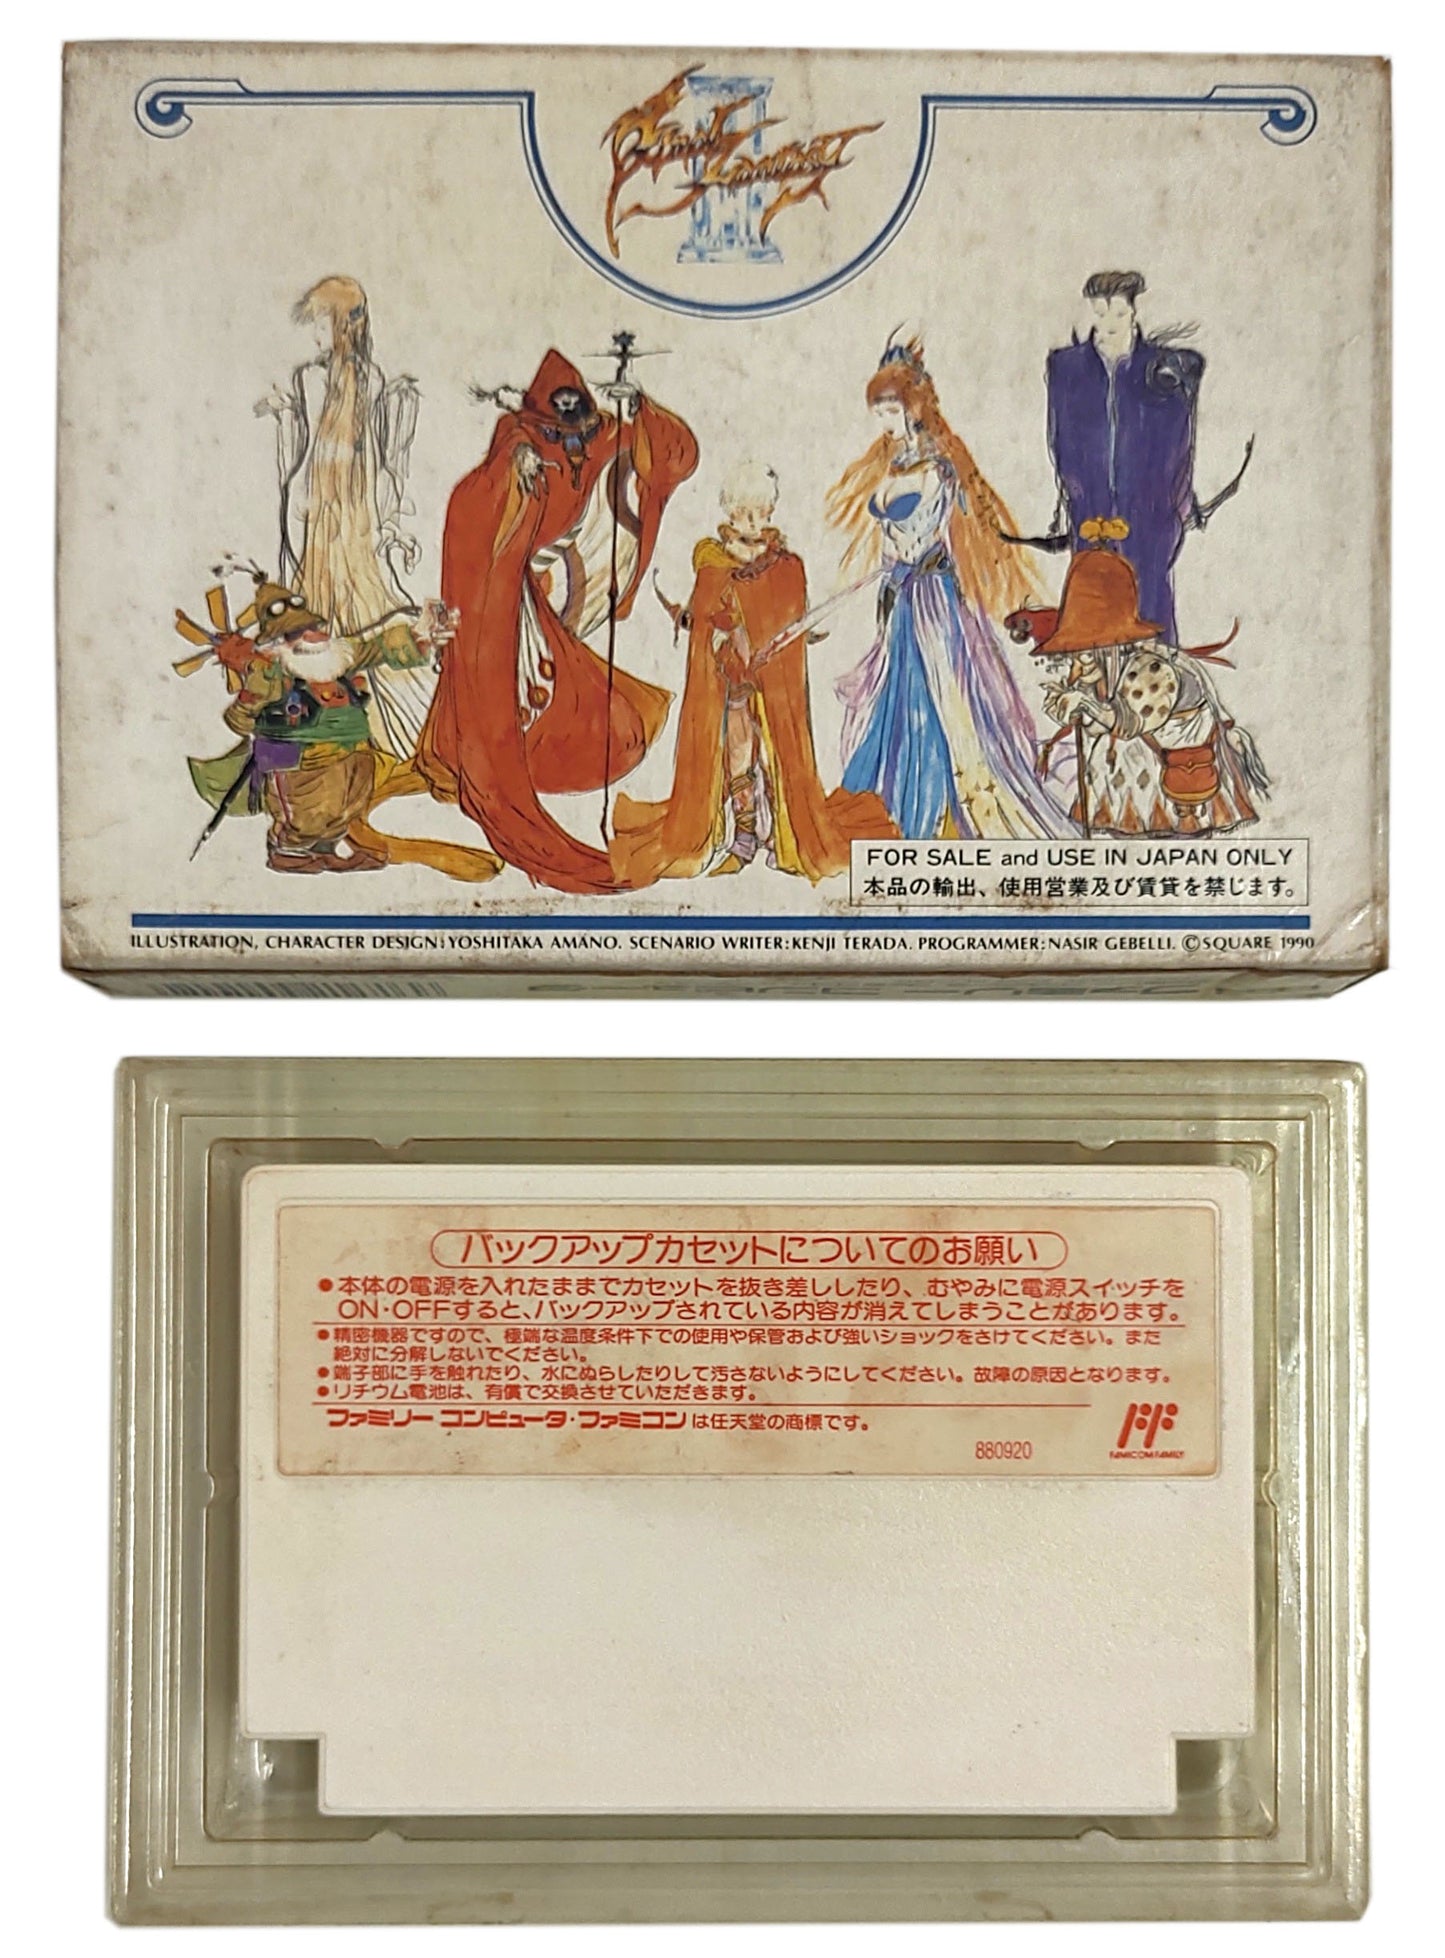 Final Fantasy III
FOR SALE and USE IN JAPAN ONLY
本品の輸出、使用営業及び賃貸を禁じます。
ILLUSTRATION, CHARACTER DESIGN:YOSHITAKA AMANO. SCENARIO WRITER:KENJI TERADA. PROGRAMMER:NASIR GEBELLI. ©SQUARE 1990
バックアップカセットについてのお願い
●本体の電源を入れたままでカセットを抜き差ししたり、むやみに電源スイッチを
ON・OFFすると、バックアップされている内容が消えてしまうことがあります。
●精密機器ですので、極端な温度条件下での使用や保管および強いショックをさけてください。また
絶対に分解しないでください。
●端子部に手を触れたり、水にぬらしたりして汚さないようにしてください。故障の原因となります。
●リチウム電池は、有償で交換させていただきます。
ファミリーコンピュータ・ファミコンは任天堂の商標です。
880920
FF
FAMICOM FAMILY